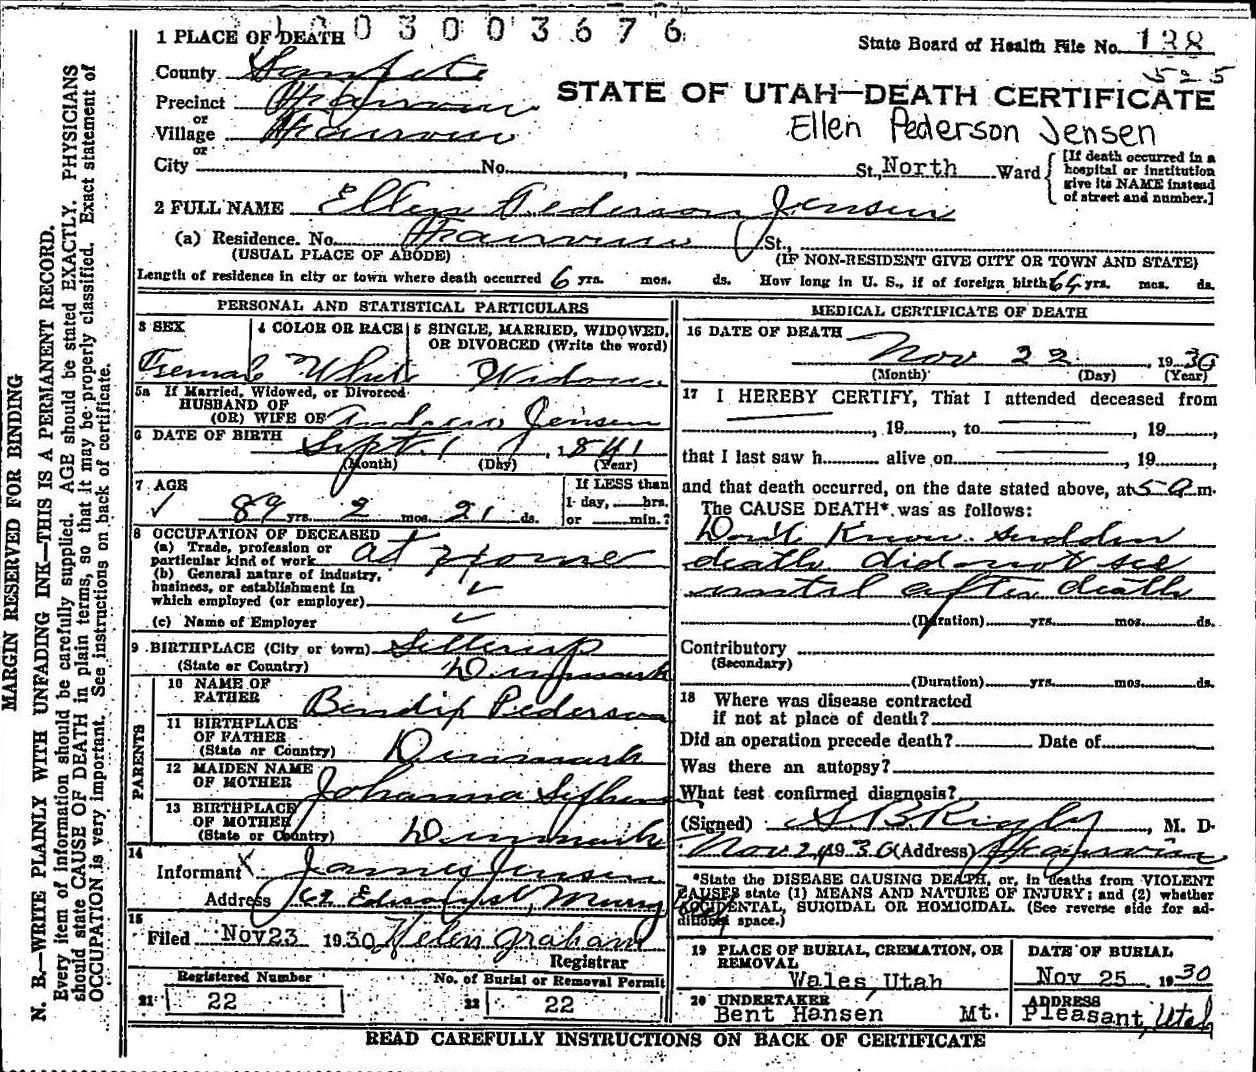 1003003676
1 PLACE OF DEATH
State Board of Health File No. 138
525
County Sanpete
STATE OF UTAH—DEATH CERTIFICATE
Precinct Fairview
or
Ellen Pederson Jensen
Village Fairview
or
City No. , St., North Ward
[If death occurred in a hospital or institution give its NAME instead of street and number.]
2 FULL NAME Ellen Pederson Jensen
(a) Residence. No. Fairview St.,
(USUAL PLACE OF ABODE) (IF NON-RESIDENT GIVE CITY OR TOWN AND STATE)
Length of residence in city or town where death occurred 6 yrs. mos. ds. How long in U. S., if of foreign birth 64 yrs. mos. ds.
PERSONAL AND STATISTICAL PARTICULARS
3 SEX 4 COLOR OR RACE 5 SINGLE, MARRIED, WIDOWED, OR DIVORCED (Write the word)
Female White Widow
5a If Married, Widowed, or Divorced
HUSBAND OF
(OR) WIFE OF Andrew Jensen
6 DATE OF BIRTH Sept. 1, 1841
(Month) (Day) (Year)
7 AGE If LESS than
1 day, hrs.
89 yrs. 2 mos. 21 ds. or min.?
8 OCCUPATION OF DECEASED
(a) Trade, profession or
particular kind of work at Home
(b) General nature of industry,
business, or establishment in
which employed (or employer)
(c) Name of Employer
9 BIRTHPLACE (City or town)
(State or Country) Denmark
PARENTS
10 NAME OF
FATHER Pederson
11 BIRTHPLACE
OF FATHER
(State or Country) Denmark
12 MAIDEN NAME
OF MOTHER Johanna
13 BIRTHPLACE
OF MOTHER
(State or Country) Denmark
14
Informant James Jensen
Address 62 St, Murray
15
Filed Nov 23 1930 Helen Graham
Registrar
Registered Number No. of Burial or Removal Permit
21 22 22 22
MEDICAL CERTIFICATE OF DEATH
16 DATE OF DEATH
Nov 22, 1930
(Month) (Day) (Year)
17 I HEREBY CERTIFY, That I attended deceased from
, 19 , to , 19 ,
that I last saw h alive on , 19 ,
and that death occurred, on the date stated above, at 5 a m.
The CAUSE DEATH* was as follows:
Don't Know. Sudden
death did not see
until after death
(Duration) yrs. mos. ds.
Contributory
(Secondary)
(Duration) yrs. mos. ds.
18 Where was disease contracted
if not at place of death?
Did an operation precede death? Date of
Was there an autopsy?
What test confirmed diagnosis?
(Signed) S B Rigby, M. D.
Nov 24 1930 (Address) Fairview
*State the DISEASE CAUSING DEATH, or, in deaths from VIOLENT
CAUSES state (1) MEANS AND NATURE OF INJURY; and (2) whether
ACCIDENTAL, SUICIDAL OR HOMICIDAL. (See reverse side for ad-
ditional space.)
19 PLACE OF BURIAL, CREMATION, OR REMOVAL DATE OF BURIAL
Wales, Utah Nov 25 1930
20 UNDERTAKER ADDRESS
Bent Hansen Mt. Pleasant, Utah
READ CAREFULLY INSTRUCTIONS ON BACK OF CERTIFICATE
MARGIN RESERVED FOR BINDING
N. B.—WRITE PLAINLY WITH UNFADING INK—THIS IS A PERMANENT RECORD.
Every item of information should be carefully supplied. AGE should be stated EXACTLY. PHYSICIANS
should state CAUSE OF DEATH in plain terms, so that it may be properly classified. Exact statement of
OCCUPATION is very important. See instructions on back of certificate.